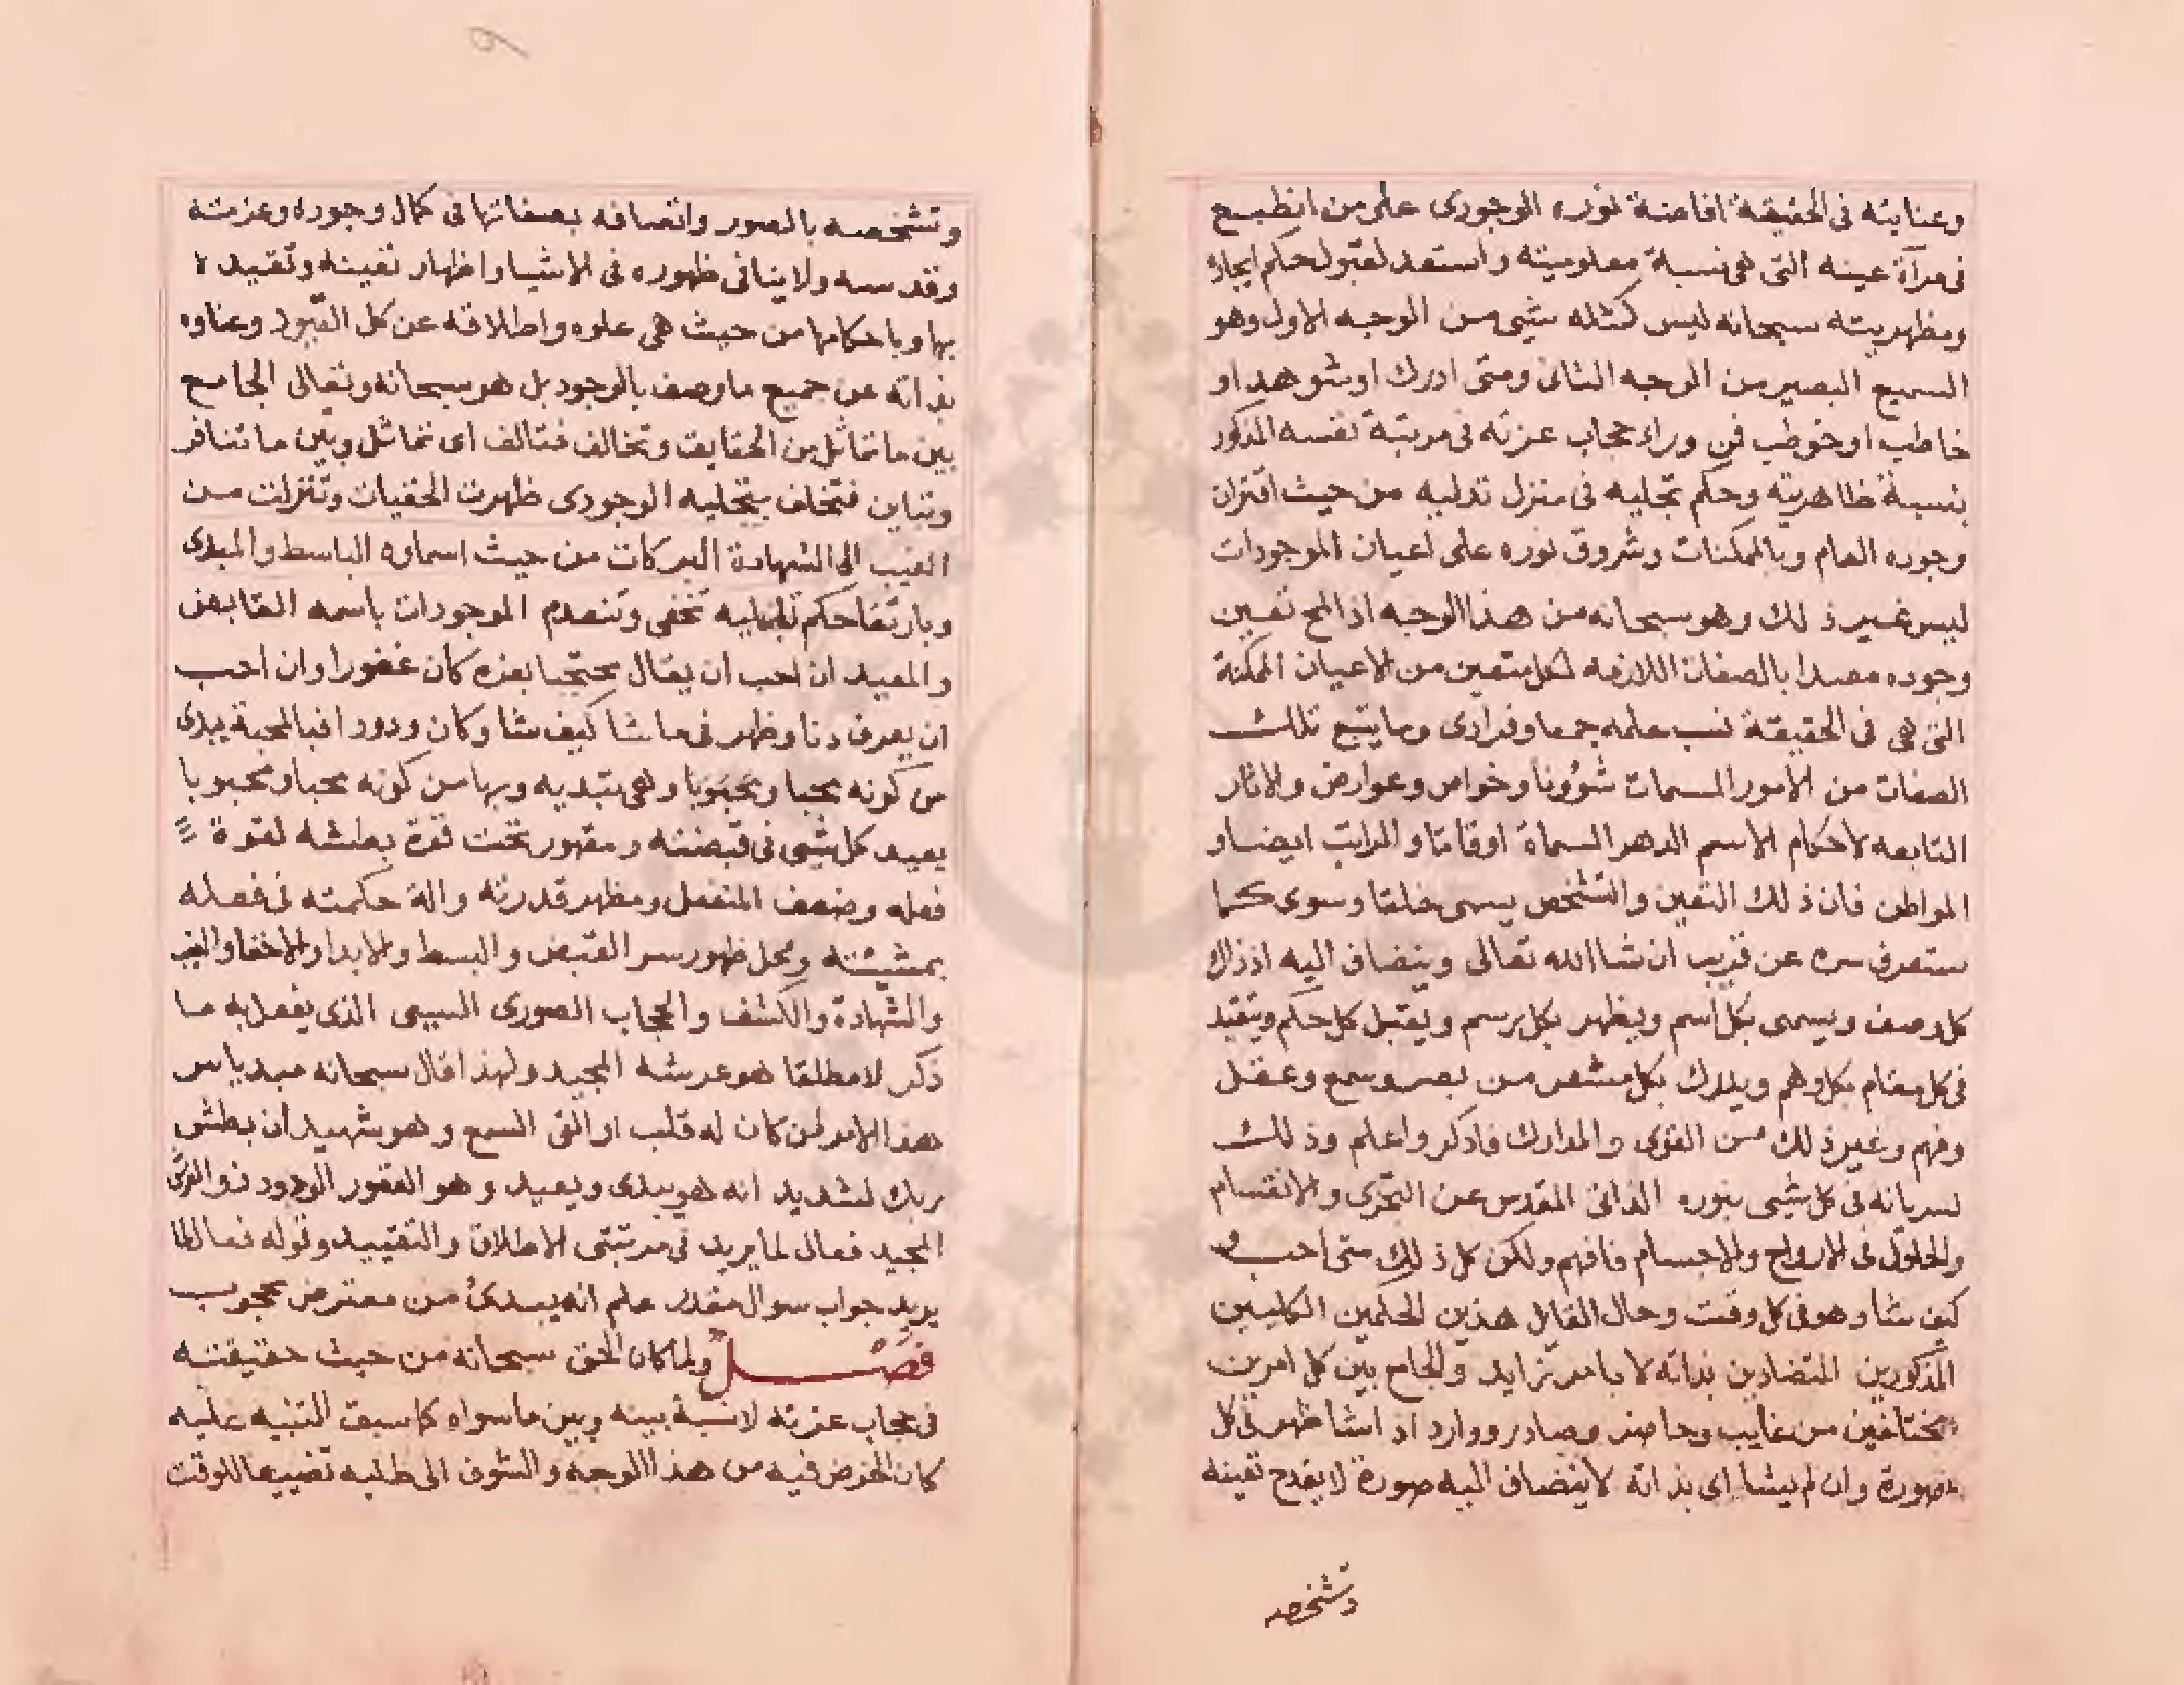 وعنايته فى الحقيقة افاضة نوره الوجودى على من انطبع
فى مرآة عينه التى هى نسبة معلوميته واستعد لقبول حكم ايجاده
ومظهريته سبحانه ليس كمثله شيى من الوجه الاول وهو
السميع البصير من الوجه الثانى ومتى ادرك او شوهد او
خاطب او خوطب فمن وراء حجاب عزته فى مرتبة نفسه المذكور
بنسبة ظاهريته وحكم تجليه فى منزل تدليه من حيث اقتران
وجوده العام وبالممكنات وشروق نوره على اعيان الموجودات
ليس غير ذلك وهو سبحانه من هذا الوجه اذا لمح تعين
وجوده مقيدا بالصفات اللازمه لكل متعين من الاعيان الممكنة
التى هى فى الحقيقة نسب علمه جمعا وفرادى وما يتبع تلك
الصفات من الامور المسمات شؤونا وخواص وعوارض والاثار
التابعه لاحكام الاسم الدهر المسماة اوقاتا والمراتب ايضا و
المواطن فان ذلك التعين والتشخص يسمى خلقا وسوى كما
ستعرف سره عن قريب ان شا الله تعالى وينضاف اليه اذ ذاك
كل وصف ويسمى بكل اسم ويظهر بكل رسم ويقبل كل حكم ويتقيد
فى كل مقام بكل وهم ويدرك بكل مشعر من بصر وسمع وعقل
وفهم وغير ذلك من القوى والمدارك فاذكر واعلم وذلك
لسريانه فى كل شيى بنوره الذاتى المقدس عن التجزى والانقسام
والحلول فى الارواح والاجسام فافهم ولكن كل ذلك متى احب و
كيف شا وهو فى كل وقت وحال القابل هذين الحكمين الكليين
المذكورين المتضادين بذاته لا بامر زايد والجامع بين كل امرين
مختلفين من غايب وحاضر وصادر ووارد اذ اشا ظهر فى كل
صورة وان لم يشأ اى بذاته لا ينضاف اليه صورة لا يقدح تعينه
وتشخصه
وتشخصه بالصور واتصافه بصفاتها فى كمال وجوده وعزته
وقدسه ولا ينافى ظهوره فى الاشيا واظهار تعينه وتقيده
بها وباحكامها من حيث هى علوه واطلاقه عن كل القيود وغناوه
بذاته عن جميع ما وصف بالوجود بل هو سبحانه وتعالى الجامع
بين ما تماثل من الحقايق وتخالف فتالف اى تماثل وبين ما تنافر
وتباين فتختلف بتجليه الوجودى ظهرت الخفيات وتنزلت من
الغيب الى الشهادة البركات من حيث اسماوه الباسط والمبدى
وبارتفاع حكم تجليه تخفى وتنعدم الموجودات باسمه القابض
والمعيد ان احب ان يقال محتجبا بعزه كان غفورا وان احب
ان يعرف دنا وظهر فى ما شا كيف شا وكان ودودا فبالمحبة يبدى
من كونه محبا ومحبوبا وهى تبديه وبها من كونه محبا ومحبوبا
يعيد كل شيى فى قبضته ومقهور تحت قوة بطشه لقوة
فعله وضعف المنفعل ومظهر قدرته والة حكمته فى فعله
بمشيئته ومحل ظهور سر القبض والبسط والابدا والاخفا والغيب
والشهادة والكشف والحجاب الصورى النسبى الذى يفعل به ما
ذكر لا مطلقا هو عرشه المجيد ولهذا قال سبحانه مبديا سر
هذا الامر لمن كان له قلب او القى السمع وهو شهيد ان بطش
ربك لشديد انه هو يبدى ويعيد وهو الغفور الودود ذو العرش
المجيد فعال لما يريد فى مرتبتى الاطلاق والتقييد وقوله فعال لما
يريد جواب سوال مقدر علم انه يبدئ من معترض محجوب
فصل ولما كان الحق سبحانه من حيث حقيقته
فى حجاب عزته لا نسبة بينه وبين ما سواه كما سبق التنبيه عليه
كان الخوض فيه من هذا الوجه والتشوق الى طلبه تضييعا للوقت